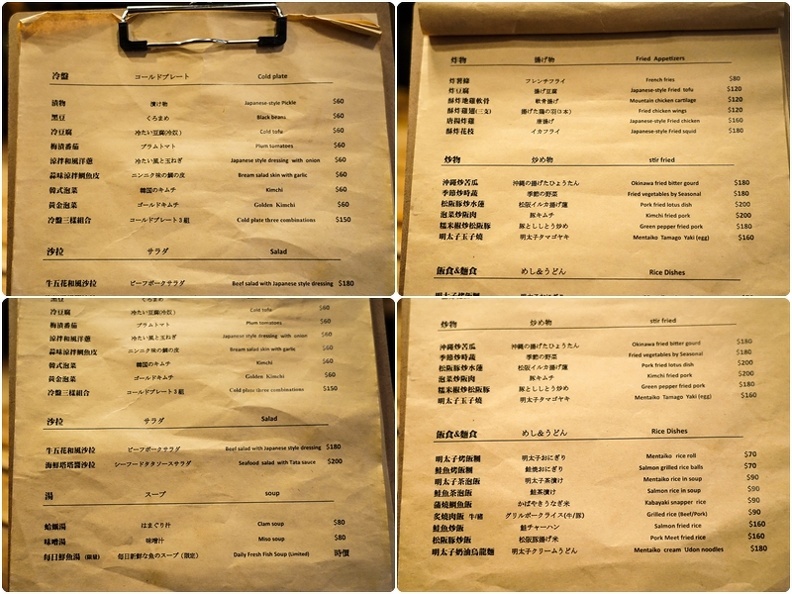 冷盤 コールドプレート Cold plate
漬物 漬け物 Japanese-style Pickle $60
黑豆 くろまめ Black beans $60
冷豆腐 冷たい豆腐(冷奴) Cold tofu $60
梅漬番茄 プラムトマト Plum tomatoes $60
涼拌和風洋蔥 冷たい風と玉ねぎ Japanese style dressing with onion $60
蒜味涼拌鯛魚皮 ニンニク味の鯛の皮 Bream salad skin with garlic $60
韓式泡菜 韓国のキムチ Kimchi $60
黃金泡菜 ゴールドキムチ Golden Kimchi $60
冷盤三樣組合 コールドプレート3組 Cold plate three combinations $150
沙拉 サラダ Salad
牛五花和風沙拉 ビーフポークサラダ Beef salad with Japanese style dressing $180
炸物 揚げ物 Fried Appetizers
炸薯條 フレンチフライ French fries $80
炸豆腐 揚げ豆腐 Japanese-style Fried tofu $120
酥炸地雞軟骨 軟骨揚げ Mountain chicken cartilage $120
酥炸雞翅(三支) 揚げた鶏の羽(3本) Fried chicken wings $120
唐揚炸雞 唐揚げ Japanese-style Fried chicken $160
酥炸花枝 イカフライ Japanese-style Fried squid $180
炒物 炒め物 stir fried
沖繩炒苦瓜 沖縄の揚げたひょうたん Okinawa fried bitter gourd $180
季節炒時蔬 季節の野菜 Fried vegetables by Seasonal $180
松阪豚炒水蓮 松阪イルカ揚げ蓮 Pork fried lotus dish $200
泡菜炒阪肉 豚キムチ Kimchi fried pork $200
糯米椒炒松阪豚 豚とししとう炒め Green pepper fried pork $180
明太子玉子燒 明太子タマゴヤキ Mentaiko Tamago Yaki (egg) $160
飯食&麵食 めし&うどん Rice Dishes
黑豆 くろまめ
冷豆腐 冷たい豆腐(冷奴) Cold tofu $60
梅漬番茄 プラムトマト Plum tomatoes $60
涼拌和風洋蔥 冷たい風と玉ねぎ Japanese style dressing with onion $60
蒜味涼拌鯛魚皮 ニンニク味の鯛の皮 Bream salad skin with garlic $60
韓式泡菜 韓国のキムチ Kimchi $60
黃金泡菜 ゴールドキムチ Golden Kimchi $60
冷盤三樣組合 コールドプレート3組 Cold plate three combinations $150
沙拉 サラダ Salad
牛五花和風沙拉 ビーフポークサラダ Beef salad with Japanese style dressing $180
海鮮塔塔醬沙拉 シーフードタタソースサラダ Seafood salad with Tata sauce $200
湯 スープ soup
蛤蠣湯 はまぐり汁 Clam soup $80
味噌湯 味噌汁 Miso soup $80
每日鮮魚湯 (限量) 毎日新鮮な魚のスープ (限定) Daily Fresh Fish Soup (Limited) 時價
炒物 炒め物 stir fried
沖繩炒苦瓜 沖縄の揚げたひょうたん Okinawa fried bitter gourd $180
季節炒時蔬 季節の野菜 Fried vegetables by Seasonal $180
松阪豚炒水蓮 松阪イルカ揚げ蓮 Pork fried lotus dish $200
泡菜炒阪肉 豚キムチ Kimchi fried pork $200
糯米椒炒松阪豚 豚とししとう炒め Green pepper fried pork $180
明太子玉子燒 明太子タマゴヤキ Mentaiko Tamago Yaki (egg) $160
飯食&麵食 めし&うどん Rice Dishes
明太子烤飯糰 明太子おにぎり Mentaiko rice roll $70
鮭魚烤飯糰 鮭焼おにぎり Salmon grilled rice balls $70
明太子茶泡飯 明太子茶漬け Mentaiko rice in soup $90
鮭魚茶泡飯 鮭茶漬け Salmon rice in soup $90
蒲燒鯛魚飯 かばやきうなぎ米 Kabayaki snapper rice $90
炙燒燒肉飯 牛/豬 グリルポークライス(牛/豚) Grilled rice (Beef/Pork) $90
鮭魚炒飯 鮭チャーハン Salmon fried rice $160
松阪豚炒飯 松阪豚揚げ米 Pork Meet fried rice $160
明太子奶油烏龍麵 明太子クリームうどん Mentaiko cream Udon noodles $180